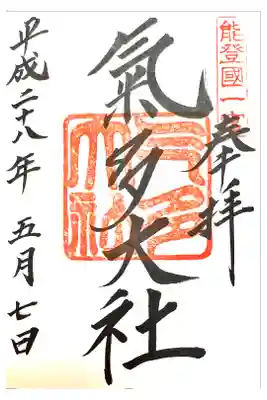 能登國一
奉拝
氣多大社
平成二十八年 五月七日